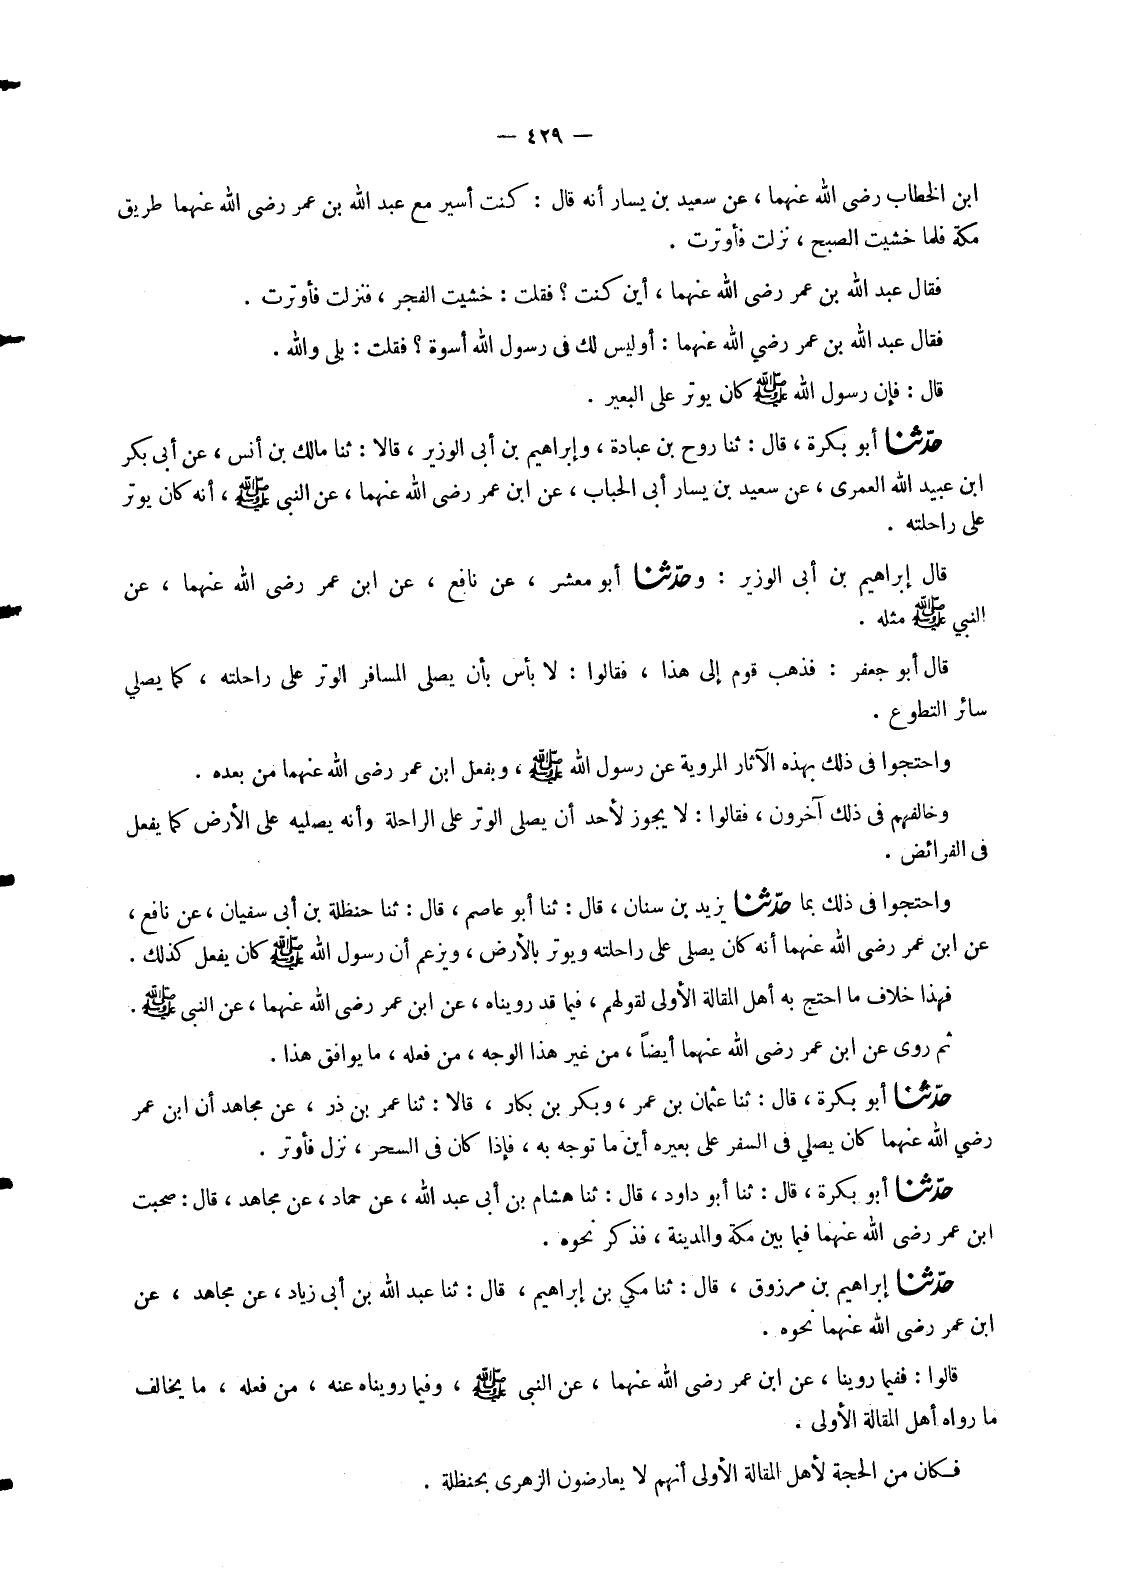 — ٤٢٩ —
ابن الخطاب رضى الله عنهما ، عن سعيد بن يسار أنه قال : كنت أسير مع عبد الله بن عمر رضى الله عنهما طريق
مكة فلما خشيت الصبح ، نزلت فأوترت .
فقال عبد الله بن عمر رضى الله عنهما ، أين كنت ؟ فقلت : خشيت الفجر ، فنزلت فأوترت .
فقال عبد الله بن عمر رضي الله عنهما : أوليس لك فى رسول الله أسوة ؟ فقلت : بلى والله .
قال : فإن رسول الله ﷺ كان يوتر على البعير .
حدّثنا أبو بكرة ، قال : ثنا روح بن عبادة ، وإبراهيم بن أبى الوزير ، قالا : ثنا مالك بن أنس ، عن أبى بكر
ابن عبيد الله العمرى ، عن سعيد بن يسار أبى الحباب ، عن ابن عمر رضى الله عنهما ، عن النبى ﷺ ، أنه كان يوتر
على راحلته .
قال إبراهيم بن أبى الوزير : وحدّثنا أبو معشر ، عن نافع ، عن ابن عمر رضى الله عنهما ، عن
النبي ﷺ مثله .
قال أبو جعفر : فذهب قوم إلى هذا ، فقالوا : لا بأس بأن يصلى المسافر الوتر على راحلته ، كما يصلي
سائر التطوع .
واحتجوا فى ذلك بهذه الآثار المروية عن رسول الله ﷺ ، وبفعل ابن عمر رضى الله عنهما من بعده .
وخالفهم فى ذلك آخرون ، فقالوا : لا يجوز لأحد أن يصلى الوتر على الراحلة وأنه يصليه على الأرض كما يفعل
فى الفرائض .
واحتجوا فى ذلك بما حدّثنا يزيد بن سنان ، قال : ثنا أبو عاصم ، قال : ثنا حنظلة بن أبى سفيان ، عن نافع ،
عن ابن عمر رضى الله عنهما أنه كان يصلى على راحلته ويوتر بالأرض ، ويزعم أن رسول الله ﷺ كان يفعل كذلك .
فهذا خلاف ما احتج به أهل المقالة الأولى لقولهم ، فيما قد رويناه ، عن ابن عمر رضى الله عنهما ، عن النبى ﷺ .
ثم روى عن ابن عمر رضى الله عنهما أيضاً ، من غير هذا الوجه ، من فعله ، ما يوافق هذا .
حدّثنا أبو بكرة ، قال : ثنا عثمان بن عمر ، وبكر بن بكار ، قالا : ثنا عمر بن ذر ، عن مجاهد أن ابن عمر
رضي الله عنهما كان يصلي فى السفر على بعيره أين ما توجه به ، فإذا كان فى السحر ، نزل فأوتر .
حدّثنا أبو بكرة ، قال : ثنا أبو داود ، قال : ثنا هشام بن أبى عبد الله ، عن حماد ، عن مجاهد ، قال : صحبت
ابن عمر رضى الله عنهما فيما بين مكة والمدينة ، فذكر نحوه .
حدّثنا إبراهيم بن مرزوق ، قال : ثنا مكي بن إبراهيم ، قال : ثنا عبد الله بن أبى زياد ، عن مجاهد ، عن
ابن عمر رضى الله عنهما نحوه .
قالوا : ففيما روينا ، عن ابن عمر رضى الله عنهما ، عن النبى ﷺ ، وفيما رويناه عنه ، من فعله ، ما يخالف
ما رواه أهل المقالة الأولى .
فكان من الحجة لأهل المقالة الأولى أنهم لا يعارضون الزهرى بحنظلة .